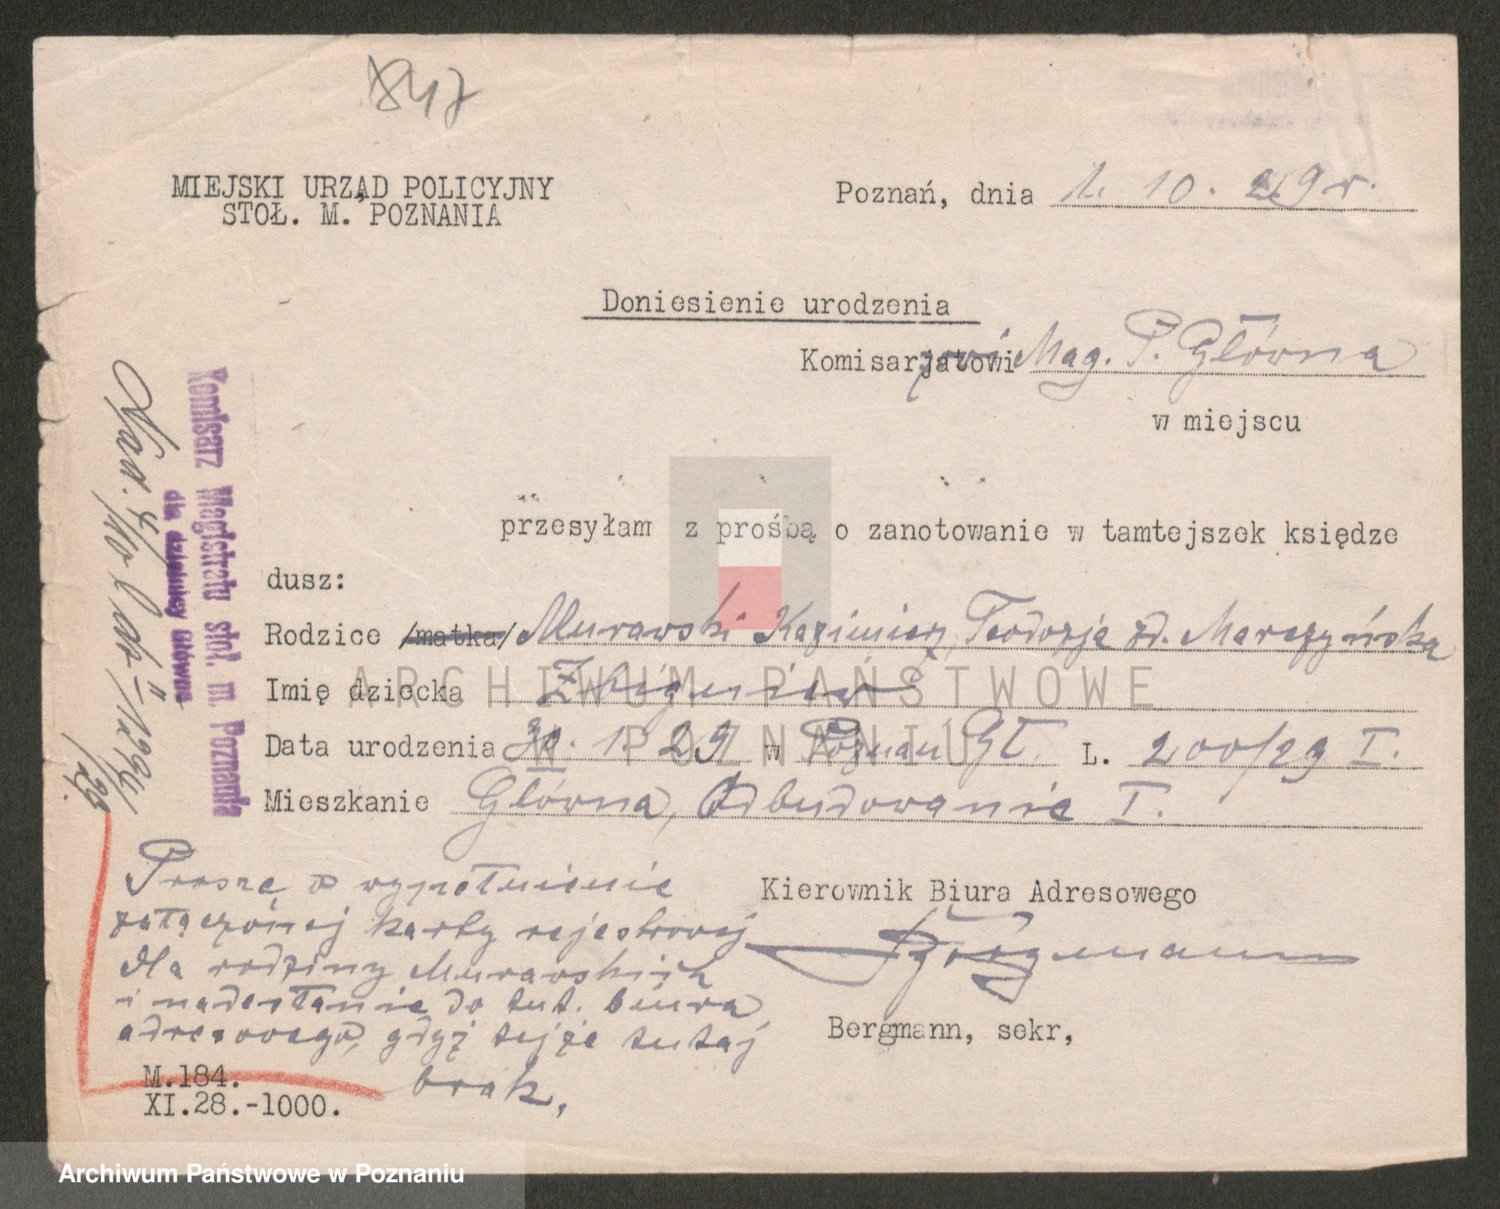 847
MIEJSKI URZĄD POLICYJNY
STOŁ. M. POZNANIA
Poznań, dnia 1. 10. 29 r.
Doniesienie urodzenia
Komisarjatowi Mag. P. Główna
w miejscu
przesyłam z prośbą o zanotowanie w tamtejszek księdze
dusz:
Rodzice /matka/ Murawski Kazimierz, Teodozja zd. Marczyńska
Imię dziecka Zbigniew
Data urodzenia 30. 1. 29 w Poznan Gł. L. 200/29 I.
Mieszkanie Główna, Odbudowanie I.
Kierownik Biura Adresowego
Bergmann
Bergmann, sekr,
Proszę o wypełnienie
załączonej karty rejestrowej
dla rodziny Murawskich
i nadesłanie do tut. biura
adresowego, gdyż tejże tutaj
brak,
M.184.
XI.28.-1000.
Komisarz Magistratu stoł. m. Poznania
dla dzielnicy Główna
ARCHIWUM PAŃSTWOWE
W POZNANIU
Archiwum Państwowe w Poznaniu